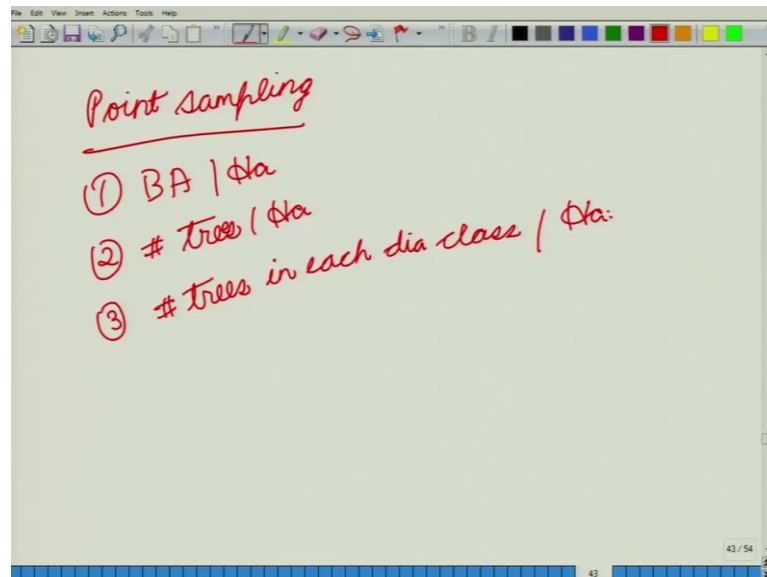 File Edit View Insert Actions Tools Help
B I
Point sampling
① BA / Ha
② # trees / Ha
③ # trees in each dia class / Ha.
43 / 54
43